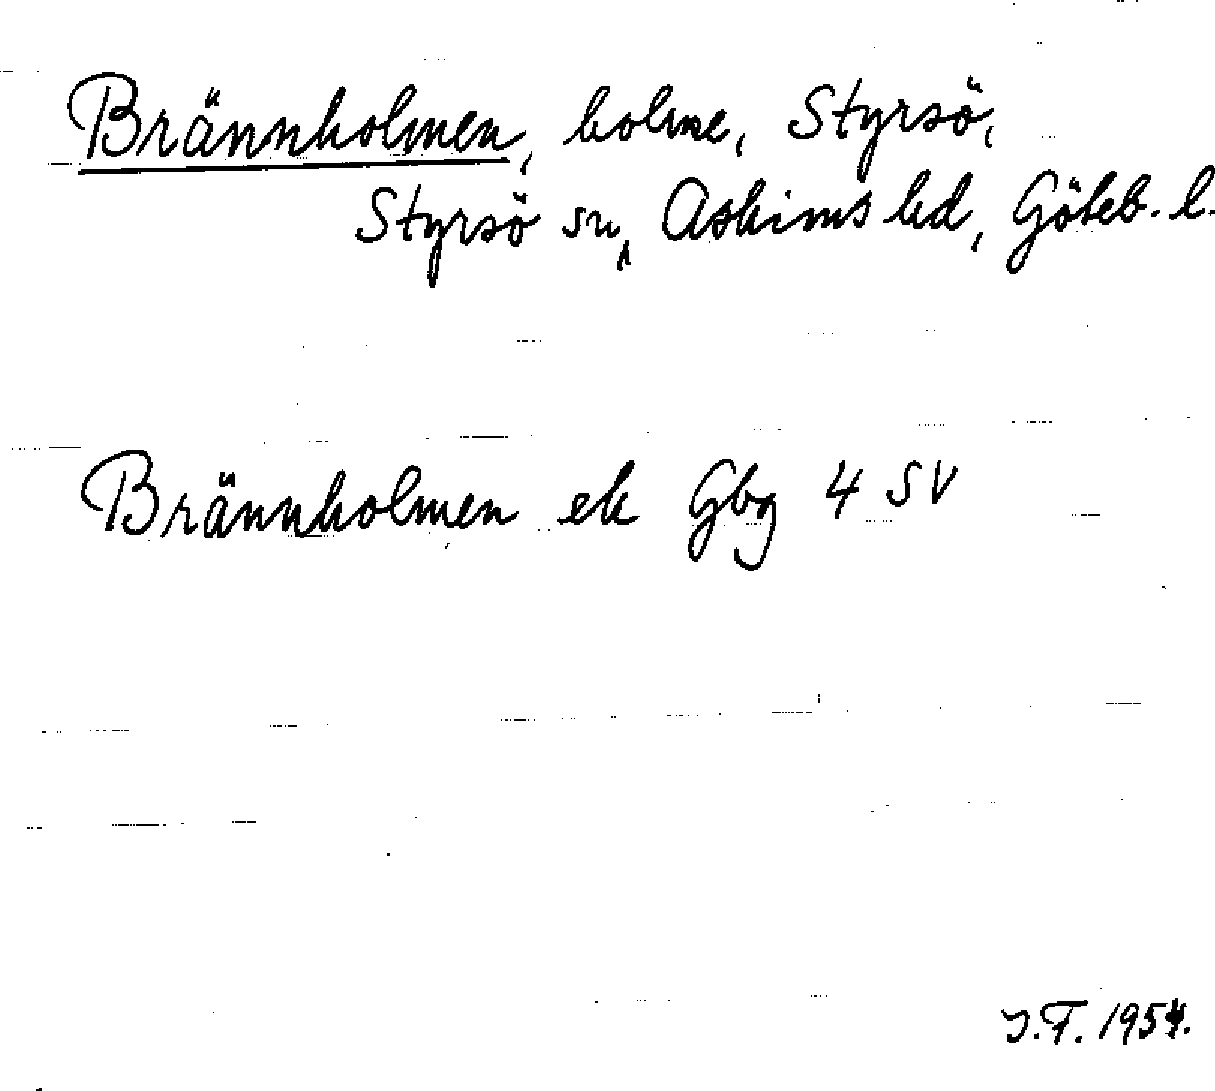 Brännholmen, holme, Styrsö,
Styrsö sn, Askims hd, Göteb. l.
Brännholmen ek Gbg 4 SV
J.F. 1954.